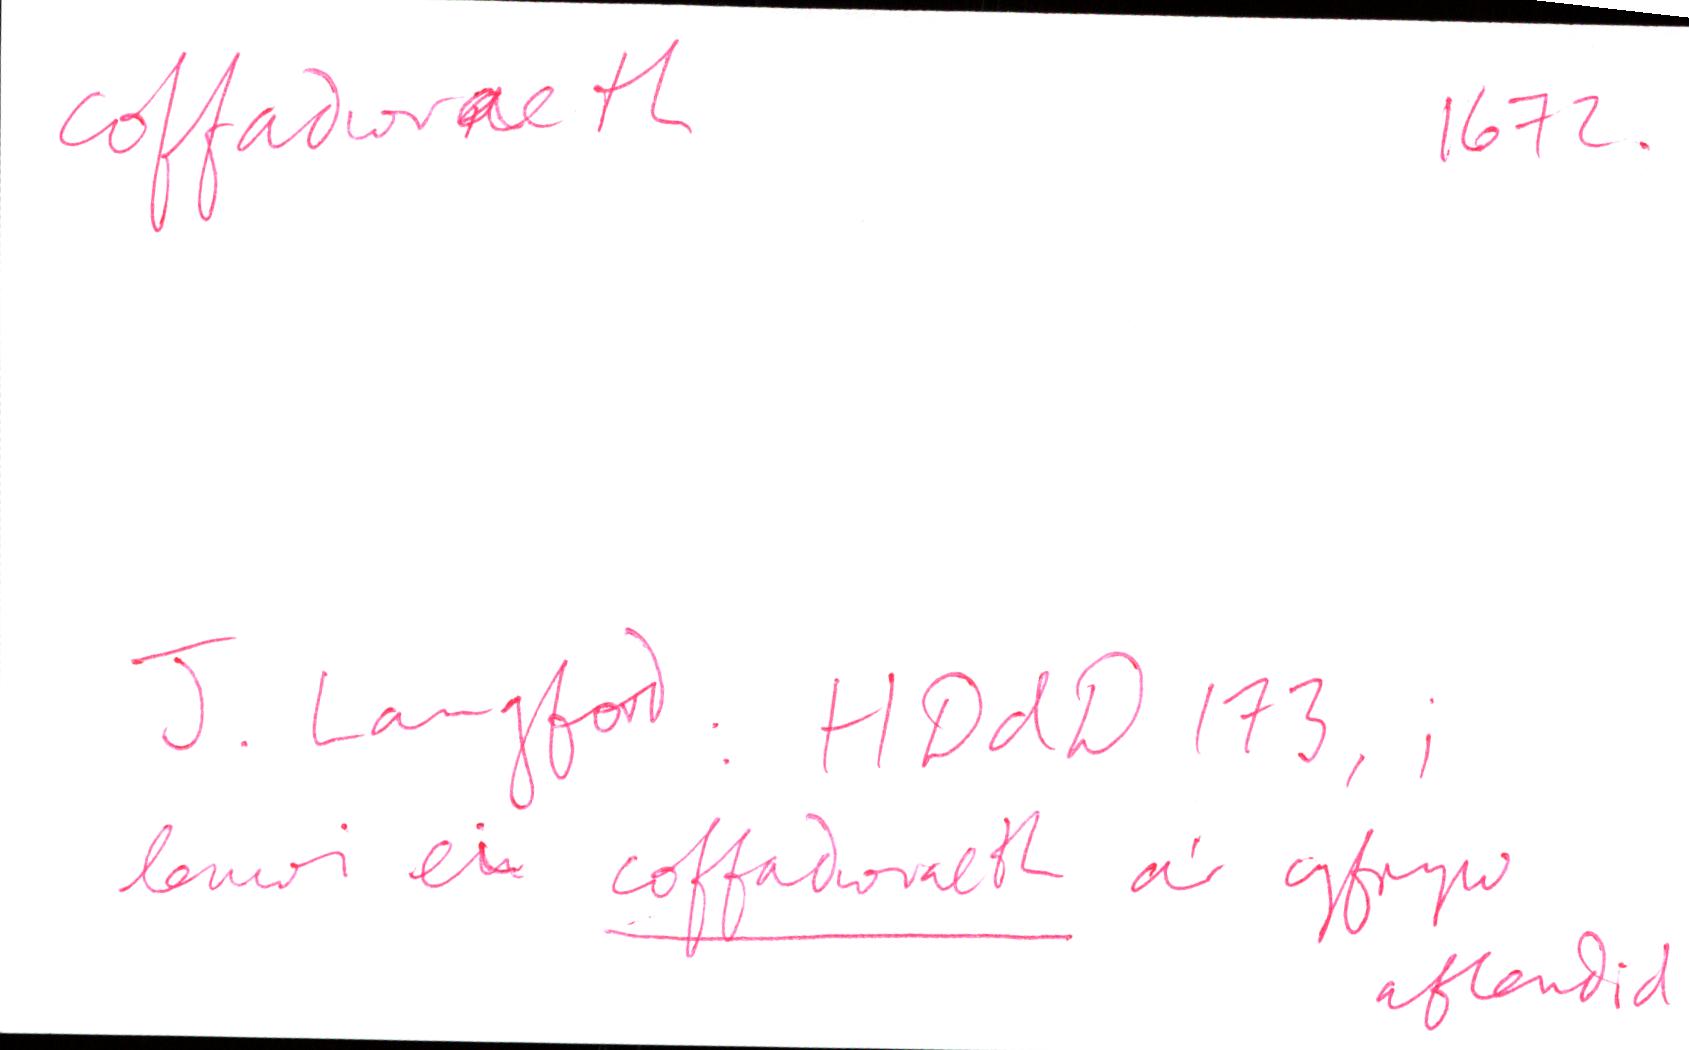 coffadwraeth 1672.
J. Langford: HDdD 173, i
lenwi ein coffadwraeth a'r cyfryw
aflendid